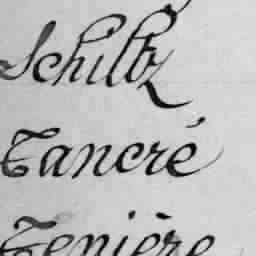 Schultz
Tancré
Tenière